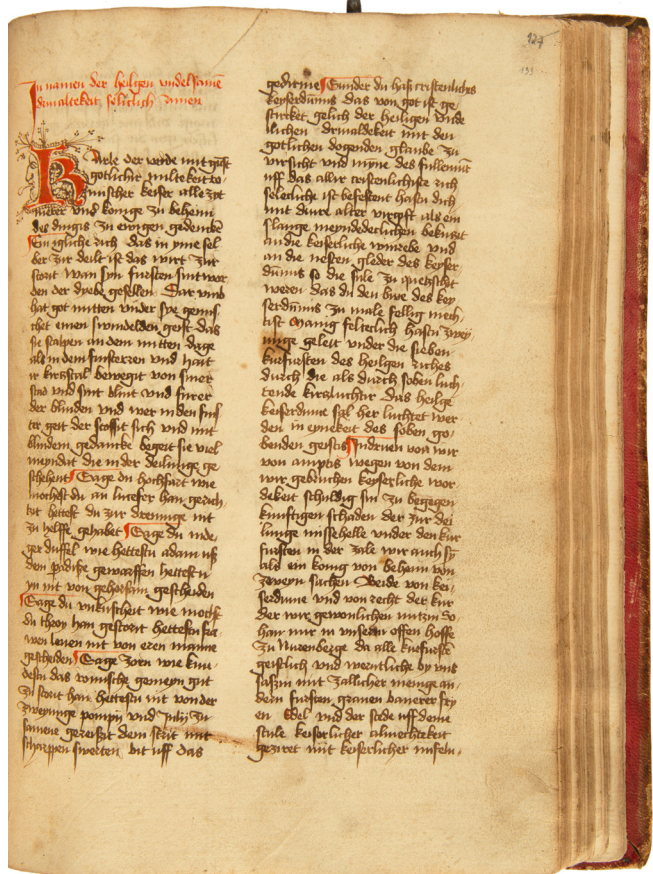 127
In namen der heilgen vndelsame
drivaltekeit seliclich Amen
Karle der virde mit gust
gotlicher miltekeit ro
mischer keiser alle zyt
merer vnd konige zu behemi
des dingis zu ewigen gedencke
Ein igliche rich das in yme sel
ber zur deilt ist das wirt zur
storit wan syn fursten sint wor
den der dyebe gesellen Dar vmb
hat got mitten vnder sye gemis
chet einen swindelden geist das
sie tastpen an dem mitten dage
als in dem finsterzen vnd hait
ir kirtzstal bewegit von siner
stad vnd sint blint vnd furer
der blinden vnd wer in den fins
ter geit der stossit sich vnd mit
blindem gedancke begert sie viel
meyndat die in der deilunge ge
schehent Sage du hochfart wie
mochtest du an lucefer han gerich
tzit hettest du zur drennige nit
zu helffe gehabet Sage du nide
ger duffel wie hettestu adam uß
dem padise geworffen hettestu
yn nit von gehorsam gescheiden
Sage du vnkuscheit wie mocht
du throy han gestorit hettestu fra
wen lenen nit von eren manne
gescheiden Sage zorn wie kun
destu das romische gemeyn gut
zu storit han hettestu nit von der
zweyunge pompij vnd Julij zu
samene gereißit dem strit mit
scharppen swerten bit uff das
gedirme Sunder du hast cristenlichs
keyserdumis das von got ist ge
stircket gelich der heiligen vnde
ilichen drivaldekeit mit den
gotlichen dogenden glaube zu
virsicht vnd mynne des fullemut
uff das allir cristenlichiste rich
selecliche ist befestent hastu dich
mit dinre alter virgyft als ein
slange meyndedeclichen bekutzt
an die keiserliche winrebe vnd
an die nesten gleder des keyser
dumis so die sule zu quetzscht
weren das du den buwe des key
serdumis zu male fellig mech
tist Manig felteclich hastu zwey
unge geleit vnder die sieben
kurfursten des heilgen riches
durch die als durch soben luch
tende kirtzluchter das heilge
keiserdume sal her luchtet wer
den in eynekeit des soben go
benden geistis In druen von wir
von amptis wegen von dem
wir gebruchen keyserliche wor
dekeit schuldig sin zu begegen
kunftigen schaden der zur dei
lunge missehelle vnder den kur
fursten in der zale wir auch sy
als ein konig von behem von
zweyn sachen Beide von kei
serdume vnd von recht der kur
der wir gewonlichen nutzin so
han wir in vnserm offen hoffe
zu Nurenberge da alle kurfurstē
geistlich vnd werntliche by vns
saszin mit zallicher menige an
dern fursten grauen banerer fry
en edel vnd der stede uff deme
stule keiserlicher almechtekeit
geziret mit keiserlicher infeln